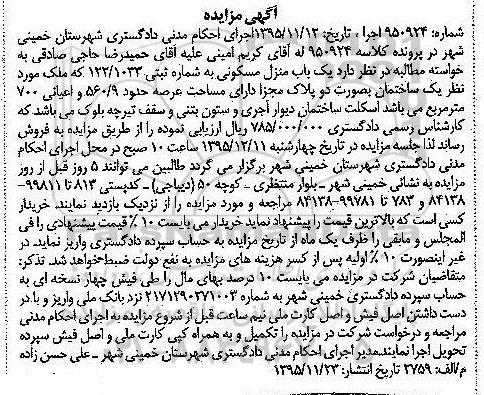 آگهی مزایده
شماره: ۹۵۰۹۲۴ اجرا ، تاریخ: ۱۳۹۵/۱۱/۱۲اجرای احکام مدنی دادگستری شهرستان خمینی
شهر در پرونده کلاسه ۹۵۰۹۲۴ له آقای کریم امینی علیه آقای حمیدرضا حاجی صادقی به
خواسته مطالبه در نظر دارد یک باب منزل مسکونی به شماره ثبتی ۱۲۲/۱۰۳۳ که ملک مورد
نظر یک ساختمان بصورت دو پلاک مجزا دارای مساحت عرصه حدود ۵۶۰/۹ و اعیانی ۷۰۰
مترمربع می باشد اسکلت ساختمان دیوار آجری و ستون بتنی و سقف تیرچه بلوک می باشد که
کارشناس رسمی دادگستری ۷۸۵/۰۰۰/۰۰۰ ریال ارزیابی نموده را از طریق مزایده به فروش
رساند لذا جلسه مزایده در تاریخ چهارشنبه ۱۳۹۵/۱۲/۱۱ ساعت ۱۰ صبح در محل اجرای احکام
مدنی دادگستری شهرستان خمینی شهر برگزار می گردد طالبین می توانند ۵ روز قبل از روز
مزایده به نشانی خمینی شهر ـ بلوار منتظری ـ کوچه ۵۰ (دیباجی) ـ کدپستی ۸۱۳ تا ۹۹۸۱۱-
۸۴۱۳۸ و ۷۸۳ تا ۹۹۷۸۱-۸۴۱۳۸ مراجعه و مورد مزایده را از نزدیک بازدید نمایند. خریدار
کسی است که بالاترین قیمت را پیشنهاد نماید خریدار می بایست ۱۰ ٪ قیمت پیشنهادی را فی
المجلس و مابقی را ظرف یک ماه از تاریخ مزایده به حساب سپرده دادگستری واریز نماید. در
غیر اینصورت ۱۰ ٪ اولیه پس از کسر هزینه های مزایده به نفع دولت ضبط‌خواهد شد. تذکر:
متقاضیان شرکت در مزایده می بایست ۱۰ درصد بهای مال را طی فیش چهار نسخه ای به
حساب سپرده دادگستری خمینی شهر به شماره ۲۱۷۱۲۹۰۲۷۱۰۰۳ نزد بانک ملی واریز و با در
دست داشتن اصل فیش و اصل کارت ملی نیم ساعت قبل از شروع مزایده به اجرای احکام مدنی
مراجعه و درخواست شرکت در مزایده را تکمیل و به همراه کپی کارت ملی و اصل فیش سپرده
تحویل اجرا نمایند.مدیر اجرای احکام مدنی دادگستری شهرستان خمینی شهر ـ علی حسن زاده
م/الف: ۳۷۵۹ تاریخ انتشار: ۱۳۹۵/۱۱/۲۳